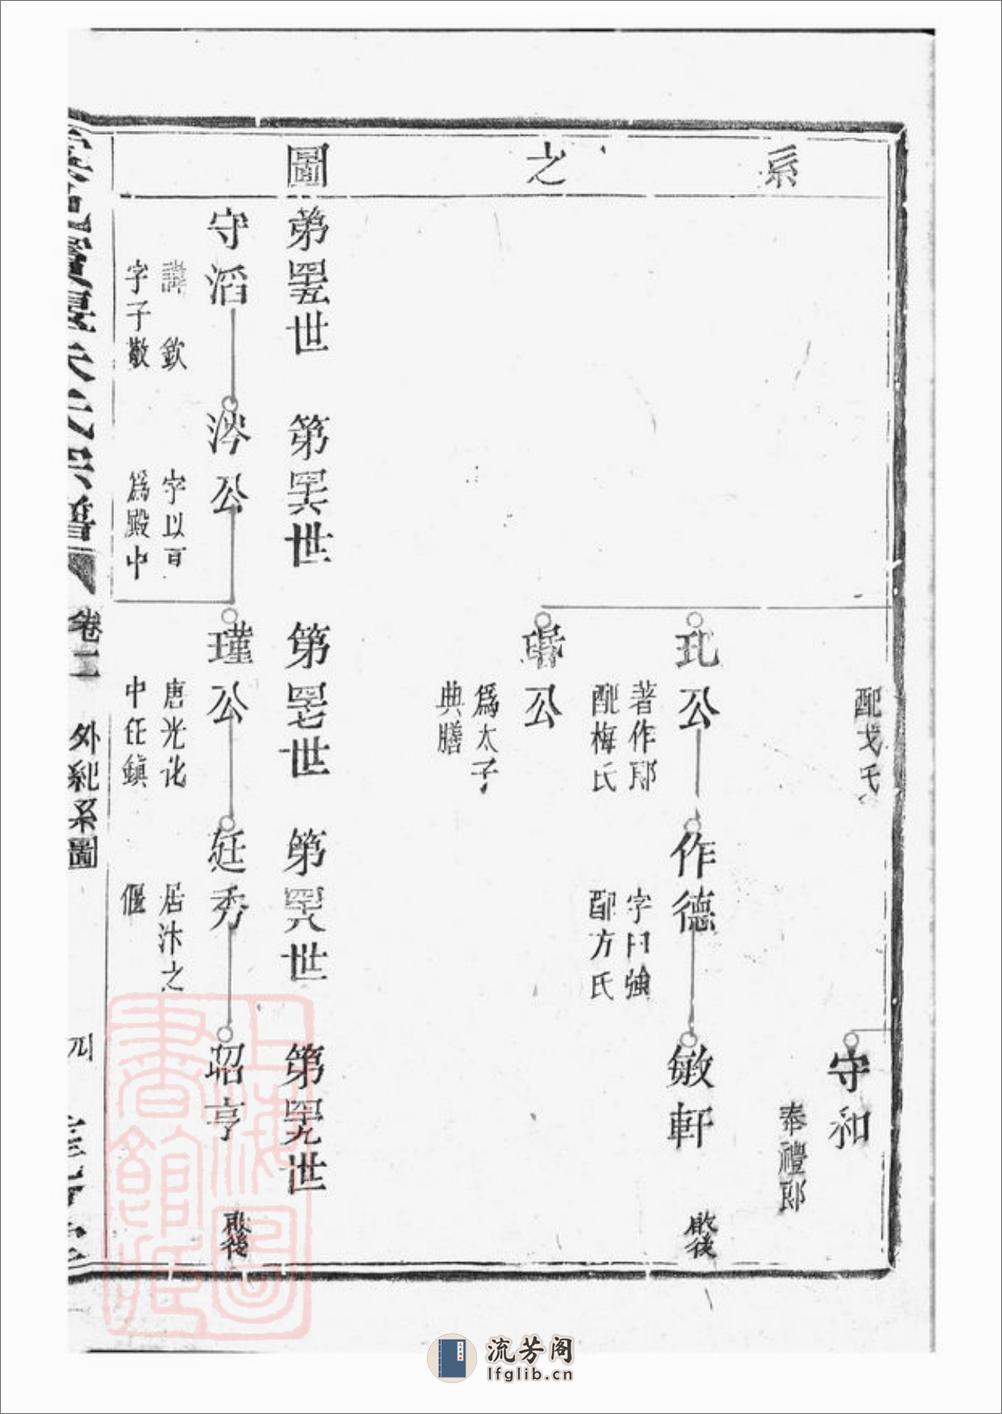 系之圖
配戈氏
守和
奉禮郎
玭公
著作郎
配梅氏
作德
字曰強
配方氏
敏軒
啟後
公
爲太子
典膳
第罣世
第世
第世
第世
第世
守滔
諱欽
字子敬
洿公
字以言
爲殿中
瑾公
唐光化
中任鎮
廷秀
居汴之
偃
昭亨
啟後
朱氏宗譜
卷二
外紀系圖
四
上海圖書館藏
流芳阁
lfglib.cn